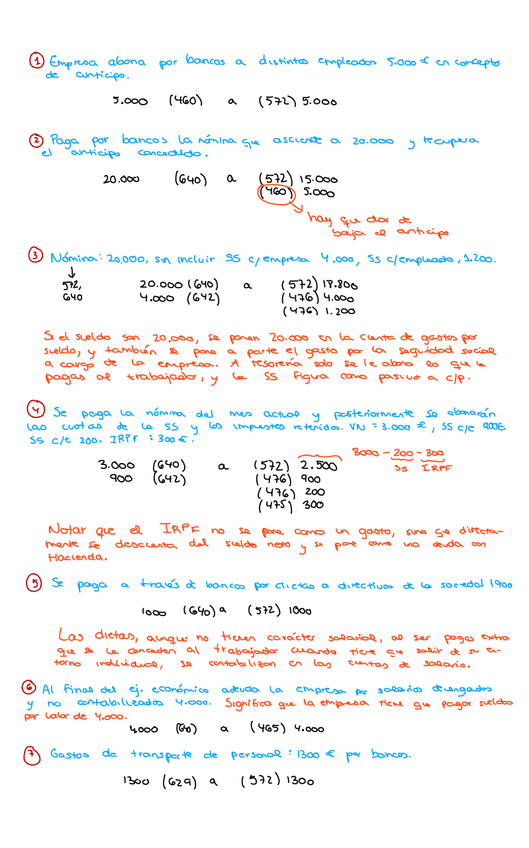 ① Empresa abona por bancos a distintos empleados 5.000 € en concepto
de anticipo.
5.000 (460) a (572) 5.000
② Paga por bancos la nómina que asciende a 20.000 y recupera
el anticipo concedido.
20.000 (640) a (572) 15.000
(460) 5.000
hay que dar de
baja el anticipo
③ Nómina: 20.000, sin incluir SS c/empresa 4.000, SS c/empleado, 1.200.
↓
572,
640
20.000 (640) a (572) 18.800
4.000 (642) (476) 4.000
(476) 1.200
Si el sueldo son 20.000, se ponen 20.000 en la cuenta de gastos por
sueldo, y también se pone a parte el gasto por la seguridad social
a cargo de la empresa. A tesorería solo se le abona lo que le
pagas al trabajador, y la SS figura como pasivo a c/p.
④ Se paga la nómina del mes actual y posteriormente se abonarán
las cuotas de la SS y los impuestos retenidos. VN = 3.000 €, SS c/e 900€
SS c/t 200. IRPF : 300 €.
3000 - 200 - 300
SS IRPF
3.000 (640) a (572) 2.500
900 (642) (476) 900
(476) 200
(475) 300
Notar que el IRPF no se pone como un gasto, sino que directa-
mente se descuenta del sueldo neto y se pone como una deuda con
Hacienda.
⑤ Se paga a través de bancos por dietas a directivos de la sociedad 1000
1000 (640) a (572) 1000
Las dietas, aunque no tienen carácter salarial, al ser pagos extra
que se le conceden al trabajador cuando tiene que salir de su en-
torno individual, se contabilizan en las cuentas de salario.
⑥ Al final del ej. económico adeuda la empresa por salarios devengados
y no contabilizados 4.000. Significa que la empresa tiene que pagar sueldos
por valor de 4.000.
4000 (640) a (465) 4.000
⑦ Gastos de transporte de personal : 1300 € por bancos.
1300 (629) a (572) 1300